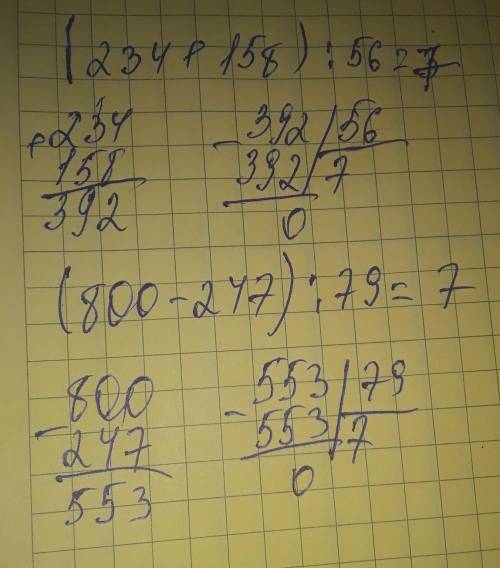 (234+158):56=7
+234
158
392
-392 56
392 7
0
(800-247):79=7
-800
247
553
-553 79
553 7
0